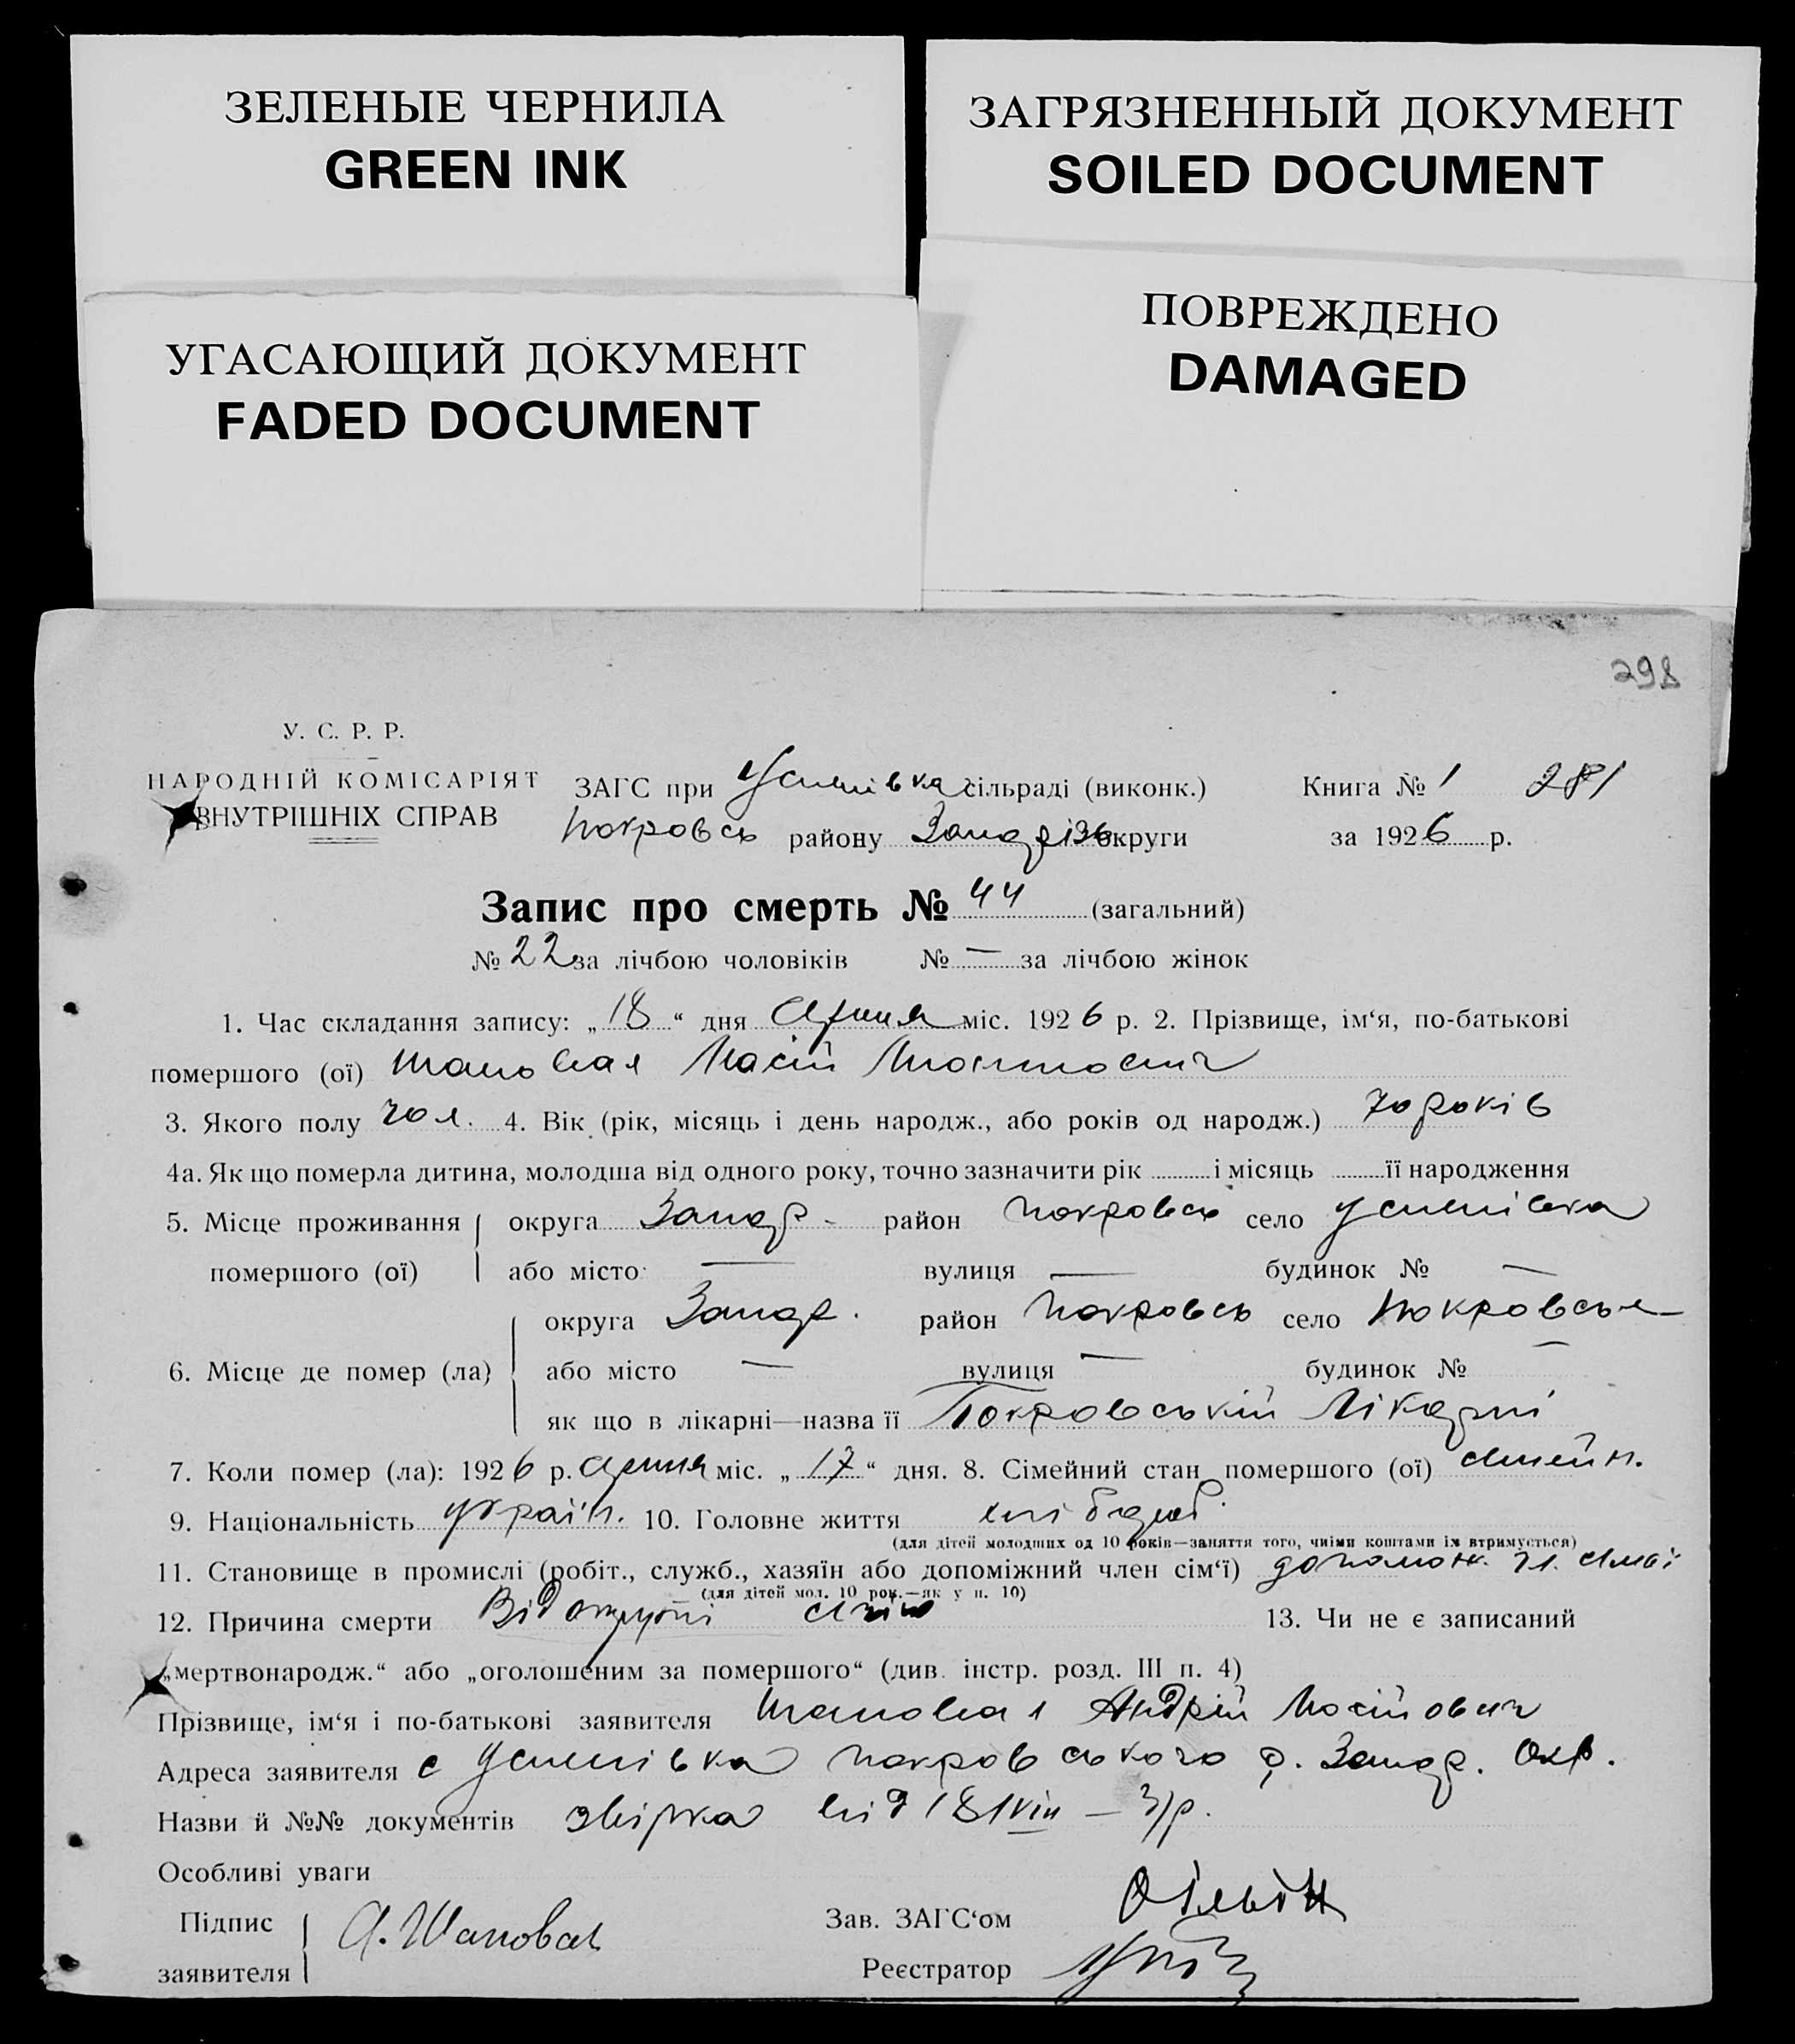 ЗЕЛЕНЫЕ ЧЕРНИЛА
GREEN INK
ЗАГРЯЗНЕННЫЙ ДОКУМЕНТ
SOILED DOCUMENT
УГАСАЮЩИЙ ДОКУМЕНТ
FADED DOCUMENT
ПОВРЕЖДЕНО
DAMAGED
298
У. С. Р. Р.
НАРОДНІЙ КОМІСАРІЯТ
ВНУТРІШНІХ СПРАВ
ЗАГС при Успенівка сільраді (виконк.)
Книга № 1 281
Покровсь району Запоріз округи
за 1926 р.
Запис про смерть № 44 (загальний)
№ 22 за лічбою чоловіків № — за лічбою жінок
1. Час складання запису: „18“ дня серпня міс. 1926 р. 2. Прізвище, ім‘я, по-батькові
помершого (ої) Шаповал
3. Якого полу чол. 4. Вік (рік, місяць і день народж., або років од народж.) 70 років
4а. Як що померла дитина, молодша від одного року, точно зазначити рік і місяць її народження
5. Місце проживання округа Запор. район Покровсь село Успенівка
помершого (ої) або місто — вулиця — будинок № —
округа Запор. район Покровсь село Покровське
6. Місце де помер (ла) або місто — вулиця — будинок № —
як що в лікарні—назва її Покровській Лікарні
7. Коли помер (ла): 1926 р. серпня міс. „17“ дня. 8. Сімейний стан помершого (ої) сімейн.
9. Національність україн. 10. Головне життя хлібороб
(для дітей молодших од 10 років—заняття того, чиїми коштами їх втримується)
11. Становище в промислі (робіт., служб., хазяїн або допоміжний член сім‘ї) допомож. чл. сім'ї
(для дітей мол. 10 рок.—як у п. 10)
12. Причина смерти Від 13. Чи не є записаний
„мертвонародж.“ або „оголошеним за помершого“ (див. інстр. розд. III п. 4)
Прізвище, ім‘я і по-батькові заявителя Шаповал Андрій
Адреса заявителя с Успенівка Покровського р. Запор. Окр.
Назви й №№ документів від
Особливі уваги
Підпис
заявителя А. Шаповал
Зав. ЗАГС‘ом
Реєстратор